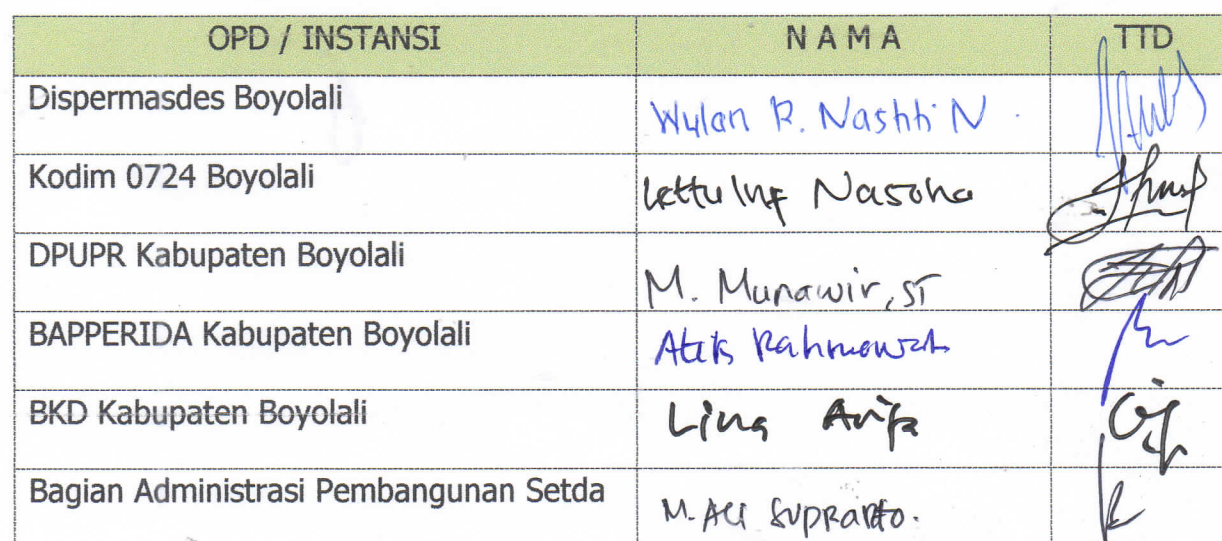 OPD / INSTANSI N A M A TTD
Dispermasdes Boyolali Wulan R. Nashti N.
Kodim 0724 Boyolali Lettu Inf Nasoha
DPUPR Kabupaten Boyolali M. Munawir, ST
BAPPERIDA Kabupaten Boyolali Atik Rahmawati
BKD Kabupaten Boyolali Lina Arifa
Bagian Administrasi Pembangunan Setda M. Ali Suprapto.